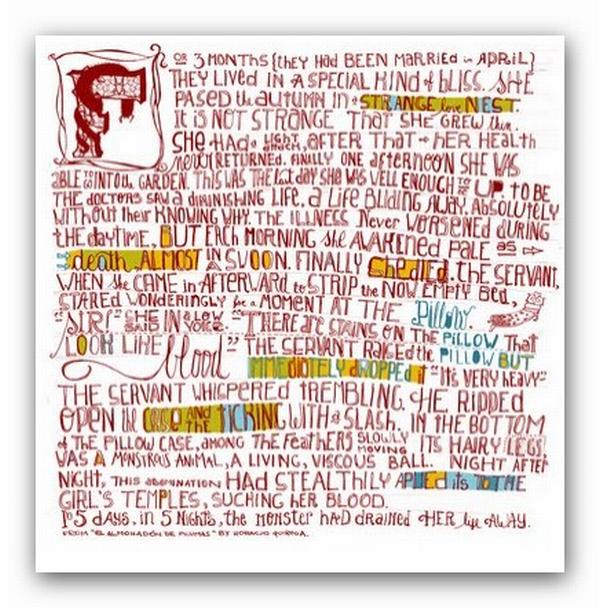 FOR 3 MONTHS {THEY HAD BEEN MARRIED in APRIL}
THEY LIVED IN A SPECIAL KIND of BLISS. SHE
PASED the AUTUMN IN a STRANGE love NEST.
It is NOT STRANGE THAT SHE GREW thin.
SHE HAD a LIGHT AFTER THAT HER HEALTH
never RETURNED. FINALLY ONE afternoon SHE WAS
ABLE to go INTO the GARDEN. THIS WAS THE last day SHE WAS WELL ENOUGH to UP TO BE
THE DOCTORS SAW a DIMINISHING LIFE, a LIFE BLIDING AWAY, ABSOLUTELY
WITHOUT their KNOWING WHY. THE ILLNESS Never WORSENED DURING
the DAYTIME, BUT EACH MORNING she AWAKENED PALE as
death, ALMOST IN SWOON. FINALLY She died. THE SERVANT,
WHEN she CAME in AFTERWARD to STRIP the NOW EMPTY BED,
STARED WONDERINGLY for a MOMENT AT THE Pillow.
"SIR!" SHE SAID IN a LOW VOICE. "THERE are STAINS ON THE PILLOW That
LOOK LIKE blood" THE SERVANT RAISED the PILLOW BUT
IMMEDIATELY dropped it "It's VERY heavy"
THE SERVANT WHISPERED TREMBLING. HE RIPPED
OPEN the CASE AND THE TICKING WITH a SLASH. IN THE BOTTOM
of THE PILLOW CASE, AMONG THE FEATHERS SLOWLY MOVING ITS HAIRY LEGS,
WAS A MONSTROUS ANIMAL, A LIVING, VISCOUS BALL. NIGHT AFTER
NIGHT, THIS ABOMINATION HAD STEALTHILY APLIED its TO THE
GIRL'S TEMPLES, SUCHING HER BLOOD.
In 5 DAYS, in 5 NIGHTS, the MONSTER HAD DRAINED HER life AWAY.
FROM "EL ALMOHADÓN DE PLUMAS" BY HORACIO QUIROGA.